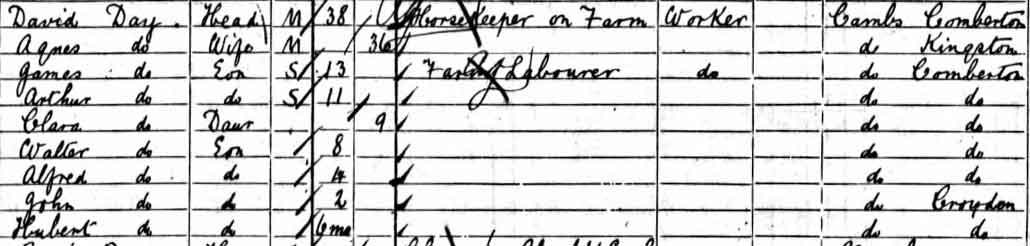 David Day. Head M 38 Horsekeeper on Farm Worker Cambs Comberton
Agnes do Wife M 36 do Kingston
James do Son S 13 Farm Labourer do do Comberton
Arthur do do S 11 do do
Clara do Daur 9 do do
Walter do Son 8 do do
Alfred do do 4 do do
John do do 2 do Croydon
Hubert do do 6 mo do do